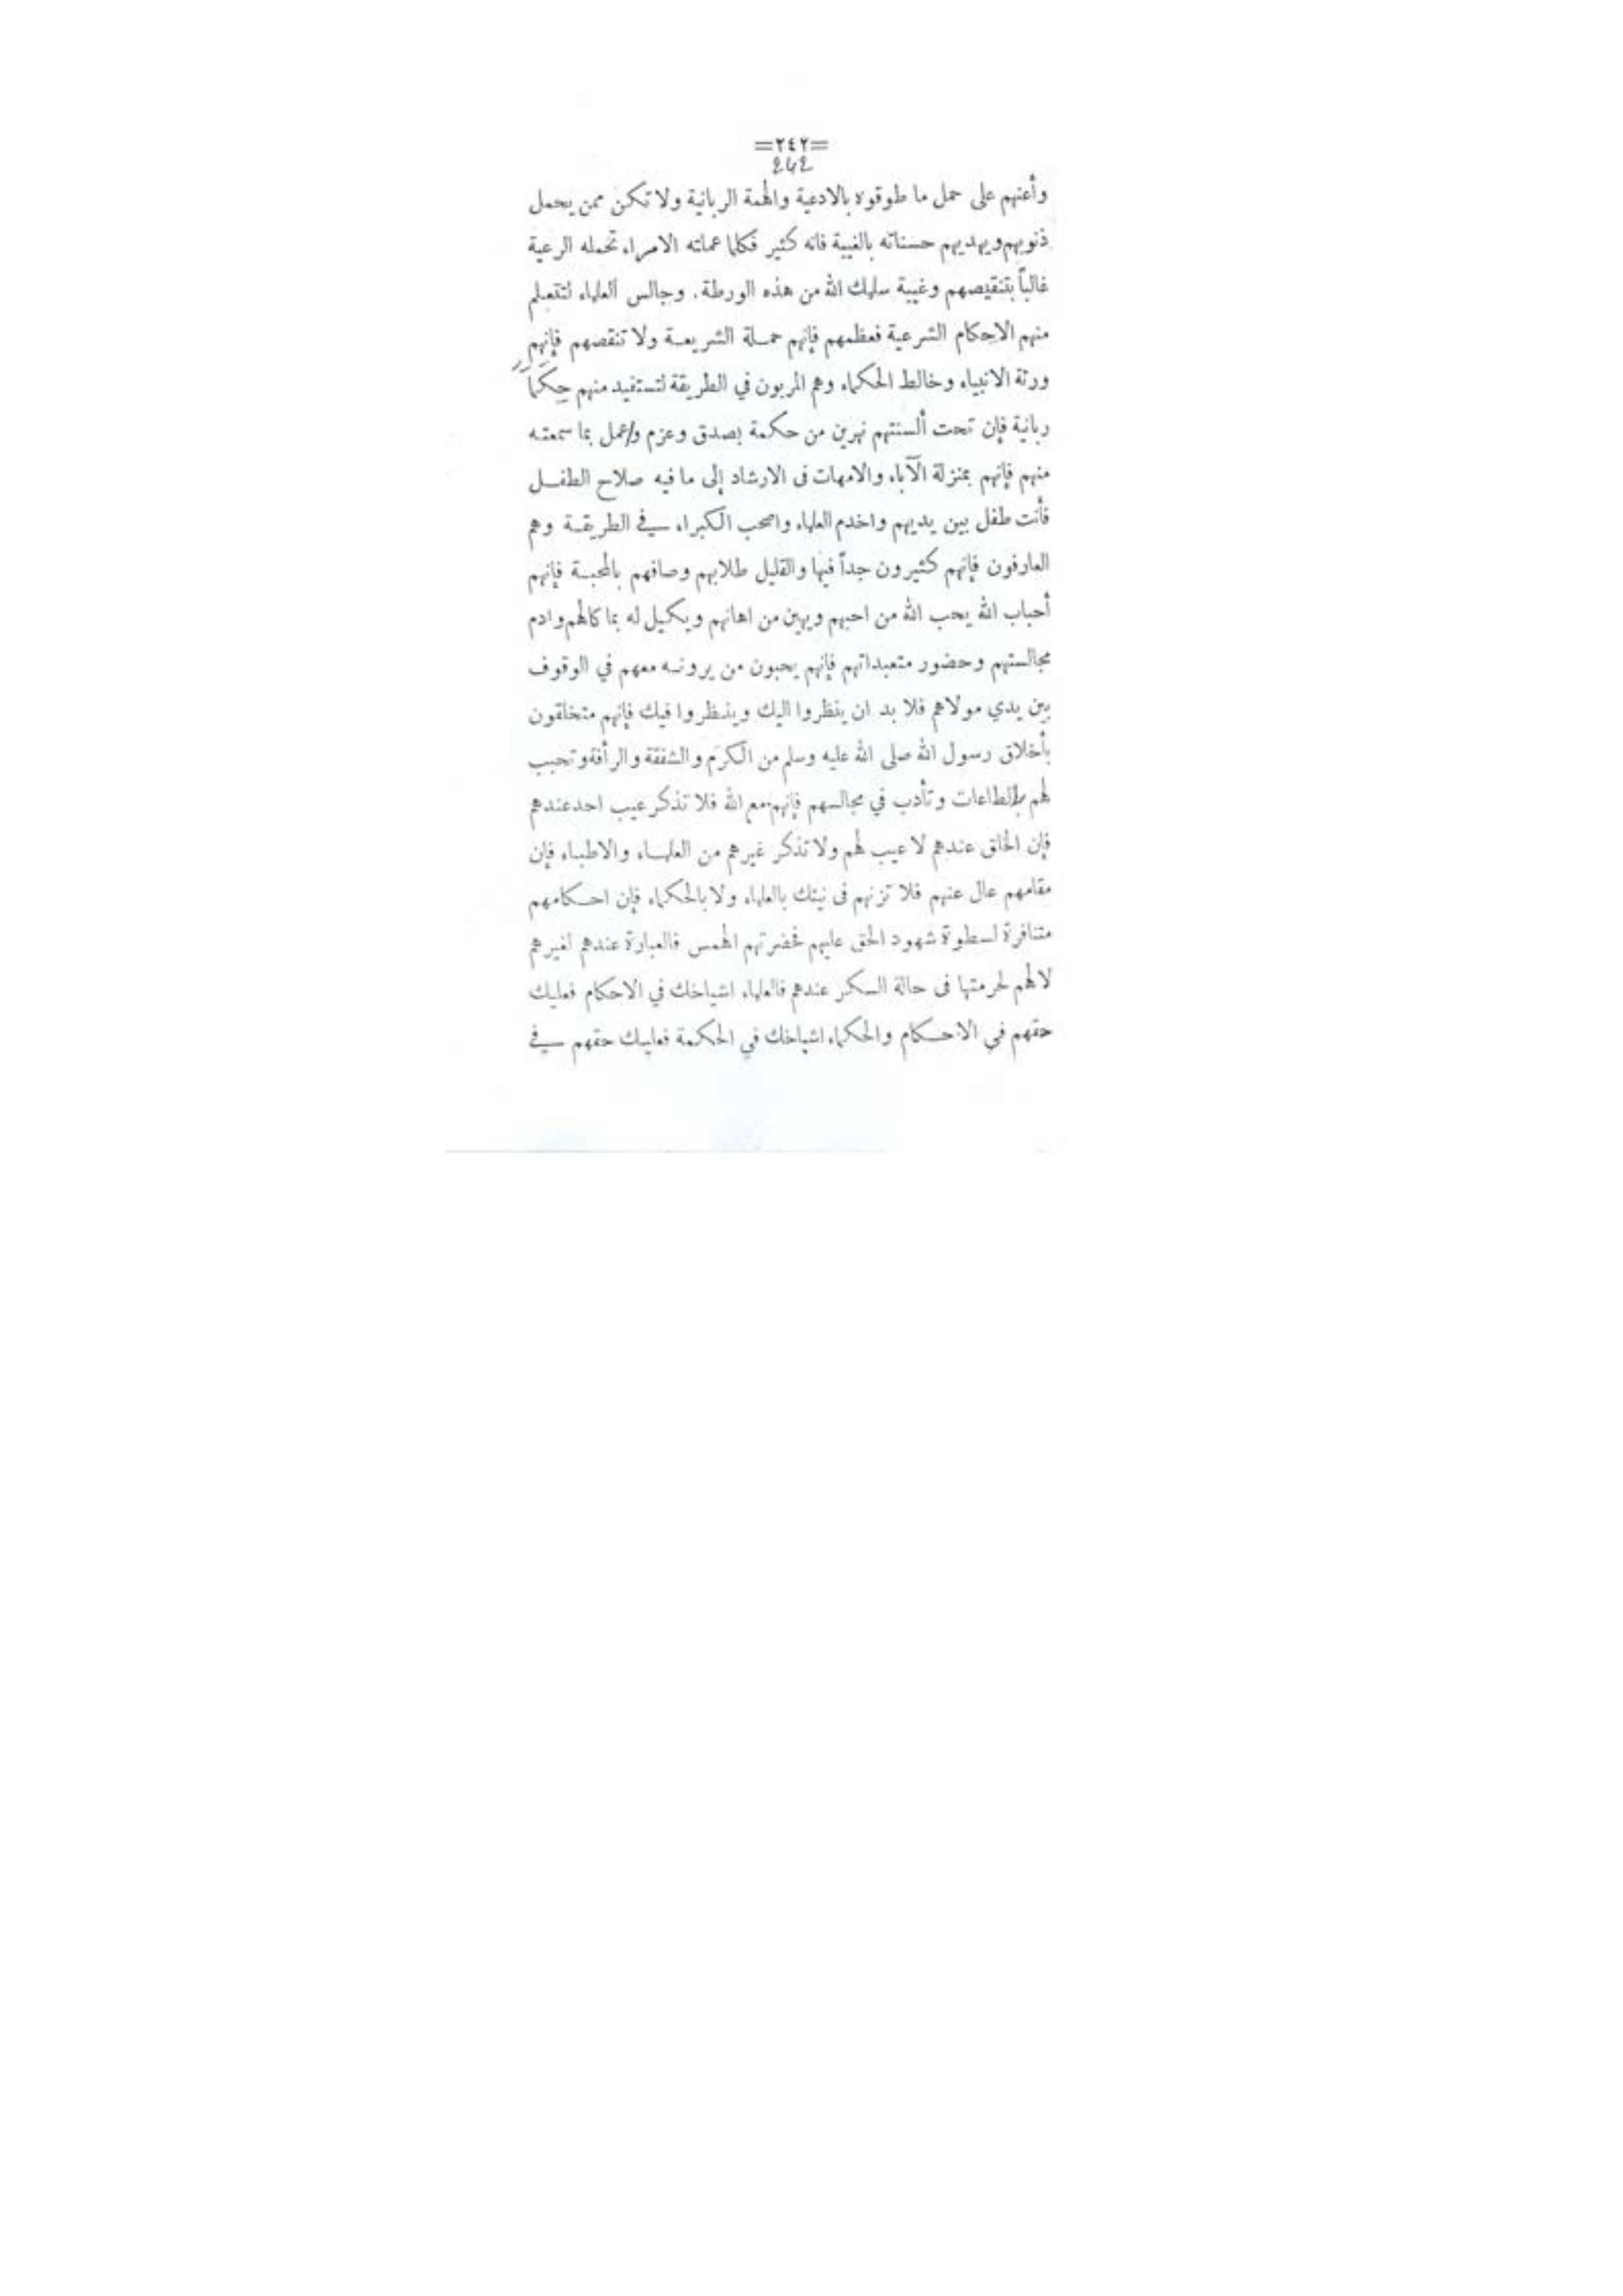 =٢٤٢=
242
وأعنهم على حمل ما طوقوه بالادعية والهمة الربانية ولا تكن ممن يحمل
ذنوبهم ويهديهم حسناته بالغيبة فانه كثير فكلما عملته الامراء تحمله الرعية
غالباً بتنقيصهم وغيبة سلمك الله من هذه الورطة. وجالس العلماء لتتعلم
منهم الاحكام الشرعية فعظمهم فإنهم حملة الشريعة ولا تنقصهم فإنهم
ورثة الانبياء وخالط الحكماء وهم المربون في الطريقة لتستفيد منهم حِكَماً
ربانية فإن تحت ألسنتهم نهرين من حكمة بصدق وعزم واعمل بما سمعته
منهم فإنهم بمنزلة الآباء والامهات فى الارشاد إلى ما فيه صلاح الطفل
فأنت طفل بين يديهم واخدم العلماء واصحب الكبراء في الطريقة وهم
العارفون فإنهم كثيرون جداً فيها والقليل طلابهم وصافهم بالمحبة فإنهم
أحباب الله يحب الله من احبهم ويهين من اهانهم ويكيل له بما كالهم وادم
مجالستهم وحضور متعبداتهم فإنهم يحبون من يرونه معهم في الوقوف
بين يدي مولاهم فلا بد ان ينظروا اليك وينظروا فيك فإنهم متخلقون
بأخلاق رسول الله صلى الله عليه وسلم من الكرم والشفقة والرأفة وتحبب
لهم بالطاعات وتأدب في مجالسهم فإنهم مع الله فلا تذكر عيب احد عندهم
فإن الخلق عندهم لا عيب لهم ولا تذكر غيرهم من العلماء والاطباء فإن
مقامهم عال عنهم فلا تزنهم فى نيتك بالعلماء ولا بالحكماء فإن احكامهم
متنافرة لسطوة شهود الحق عليهم فحضرتهم الهمس فالعبارة عندهم لغيرهم
لا لهم لحرمتها فى حالة السكر عندهم فالعلماء اشياخك في الاحكام فعليك
حقهم في الاحكام والحكماء اشياخك في الحكمة فعليك حقهم في